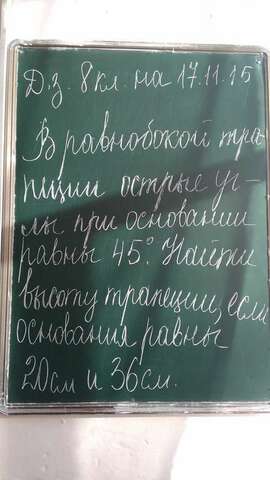 Д.з. 8 кл. на 17.11.15
В равнобокой тра-
пеции острые уг-
лы при основании
равны 45°. Найти
высоту трапеции, если
основания равны
20см и 36см.